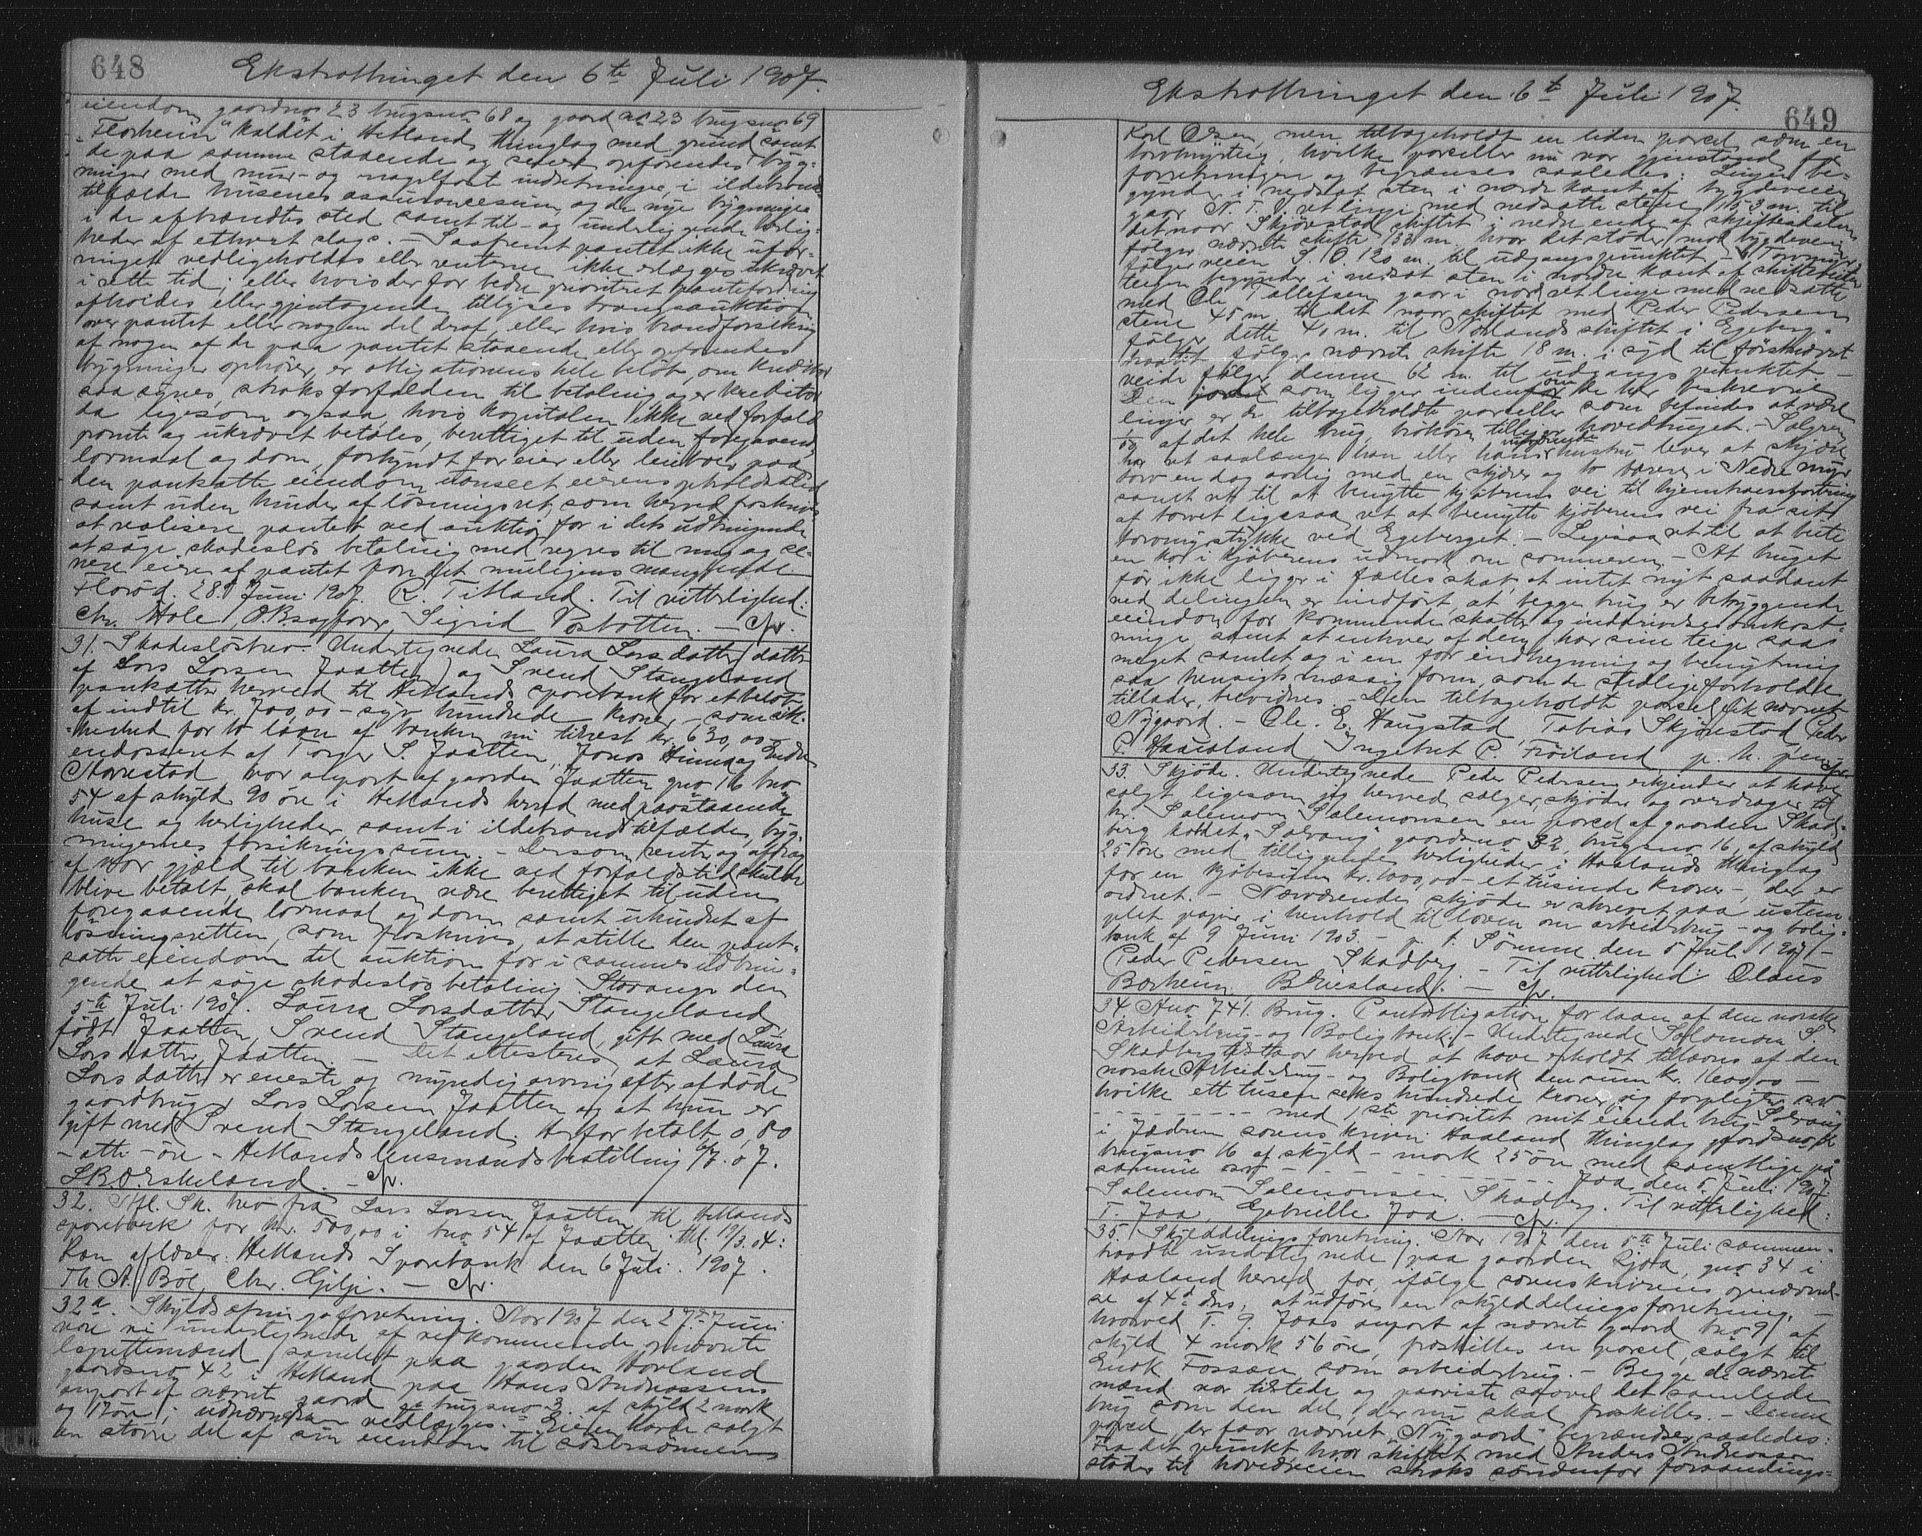 648
Ekstrattinget den 6te Juli 1907.
eiendom gaardno 23 brugsno 68 og gaard no 23 brugsno 69
"Florheim" kaldet i Hetland thinglag med grund samt
de paa samme staaende og senere opførendes byg-
ninger med mur- og nagelfast indretninger, i ildebrands-
tilfælde husenes assurancesum, og de nye bygninger
i de afbrændtes sted samt til- og underliggende herlig-
heder af ethvert slags. - Saafremt pantet ikke ufor-
ringet vedligeholdes eller renterne ikke erlægges ukrævet
i rette tid, eller hvis der for bedre prioriteret pantefordring
afholdes eller gjentagende tillyses tvangsauktion
over pantet eller nogen del deraf, eller hvis brandforsikring
af nogen af de paa pantet staaende eller opførendes
bygninger ophører, er obligationens hele beløb, om kreditor
saa synes, straks forfalden til betaling og er kreditor
da ligesom ogsaa, hvis kapitalen ikke ved forfald
promte og ukrævet betales, berettiget til uden foregaaende
lovmaal og dom, forkyndt for eier eller leiboer paa
den pantsatte eiendom uanseet eierens opholdssted
samt uden hinder af løsningsret, som herved fraskrives
at realisere pantet ved auktion for i dets udbringende
at søge skadesløs betaling med regres til mig og se-
nere eiere af pantet for det muligens manglende
Florød. 28. Juni 1907. R. Titland. Til vitterlighed:
Chr. Hole O.R.sagfører Sigrid Vosbotten. -
31. Skadesløsbrev. Undertegnede Laura Larsdatter (datter
af Lars Larsen Jaatten) og Svend Stangeland
pantsætter herved til Hetlands sparebank for et beløb
af indtil kr. 700,00 - syv hundrede kroner - som sik-
kerhed for to laan af banken nu tilrest kr. 630,00 -
endosseret af Torger S. Jaatten, Jonas Hinna og Endre
Norestad, vor anpart af gaarden Jaatten gno 16 bno
54 af skyld 90 øre i Hetlands herred med paastaaende
huse og herligheder samt i ildebrandstilfælde byg-
ningernes forsikringssum. - Dersom renter og afdrag
af vor gjæld til banken ikke ved forfaldstid skulde
blive betalt, skal banken være berettiget til uden
foregaaende lovmaal og dom samt uhindret af
løsningsretten, som fraskrives, at stille den pant-
satte eiendom til auktion for i sammes udbrin-
gende at søge skadesløs betaling Stavanger den
5te Juli 1907. Laura Larsdatter Stangeland
født Jaatten, Svend Stangeland, gift med Laura
Larsdatter Jaatten. - Det attesteres, at Laura
Larsdatter er eneste og myndig arving efter afdøde
gaardbruger Lars Larsen Jaatten og at hun er
gift med Svend Stangeland. Herfor betalt 0,80
- otti - øre - Hetlands lensmandsbestilling 6/7.07.
32. Kfl. Sk. brev fra Lars Larsen Jaatten til Hetlands
sparebank for kr. 500,00 i bno 54 af Jaatten tl. 19/3.04:
Kan aflæses. Hetlands Sparebank den 6 Juli 1907.
Th. A. Bøe, Chr. Gilje. -
32a. Skyldsætningsforretning. Aar 1907 den 27. Juni
vare vi undertegnede af vedkommende opnævnte
lagrettesmænd samlet paa gaarden Horland
gaardsno 42 i Hetland paa Hans Andreassens
anpart af nævnte gaard brugsno 3 af skyld 2 mark
og 17 øre; udnævnelsen vedlægges. - Eieren havde solgt
en større del af sin eiendom til søsterssønnen
Ekstrattinget den 6te Juli 1907.
649
Karl Olsen, men tilbageholdt en liden parcel som en
torvmyrteig, hvilke parceller nu var gjenstand for
forretningen og begrænses saaledes: Linjen be-
gynder i nedsat sten i nordre kant af bygdeveien
gaar N. T. i ret linje med nedsatte stene 153 m. til
det naar Skjørestad skiftet i nedre ende af skiftesdalen
følger nævnte skifte 133 m. hvor det støder mod bygdeveien
følger veien S. O. 120 m. til udgangspunktet. - Torvmyr-
teigen begynder i nedsat sten i nordre kant af skiftebæk
med Ole Tallefsen gaar i nord ret linje med nedsatte
stene 45 m. til det naar skiftet med Peder Pedersen
følger dette 40 m. til Norlandsskiftet i Egeberg-
braatet følger nævnte skifte 18 m. i syd til førstnævnt
veide følger denne 62 m. til udgangspunktet -
Den jorden som ligger indenfor de her beskrevne
linger er de tilbageholdte parceller som befandtes at være
1/10 af det hele brug tilhører tillige hovedbruget. - Sælgeren
har ret saalænge han eller hans nuværende hustru lever at skjære
torv en dag aarlig med en skjærer og to bærere i Nedre myr
samt ret til at benytte kjøberens vei til hjemtransportering
af torvet ligesaa ret at benytte kjøberens vei fra sit
torvmyrstykke ved Egeberget. - Ligesaa ret til at beite
en ko i kjøberens udmark om sommeren. - At bruget
før ikke ligger i fællesskab, at intet nyt saadant
ved delingen er indført, at begge brug er betryggende
eiendom for kommende skatter og inddrivelsesomkost-
ninge samt at enhver af dem har sine teige saa
meget samlet og i en for indhegning og benyttning
saa hensigtsmæssig form, som de stedlige forholde
tillader, bevidnes. - Den tilbageholdte parcel fik navnet
Nygaard. - Ole. E. Haugstad Tobias Skjørestad Peder
P. Haualand Ingebret P. Frøiland p. m. fuldm.
33. Skjøde. Undertegnede Peder Pedersen erkjender at have
solgt ligesom jeg herved sælger, skjøder og overdrager til
hr. Salemon Salemonsen en parcel af gaarden Skad-
berg kaldet "Solvang" gaardsno 32, brugsno 16, af skyld
25 øre med tilliggende herligheder i Haalands thinglag
for en kjøbesum kr. 1000,00 - et tusinde kroner -, der er
ordnet. - Nærværende skjøde er skrevet paa ustem-
plet papir i henhold til loven om arbeidsbrug- og bolig-
bank af 9 Juni 1903. - p. t. Sømme den 5 Juli 1907 -
Peder Pedersen Skadberg. - Til vitterlighed: Olaus
Borheim B. Oriesland. -
34. Ano 741. Brug. Pantobligation for laan af den norske
Arbeiderbrug- og Boligbank. - Undertegnede Salomon S.
Skadberg tilstaar herved at have erholdt tillaans af den
norske Arbeiderbrug- og Boligbank den sum kr. 1600,00 -
hvilke ett tusen seks hundrede kroner jeg forpligter osv
- - - - - - - - - med 1ste prioritet mit eiende brug Solvang
i Jæderen sorenskriveri Haaland thinglag gaardsno 32
brugsno 16 af skyld - mark 25 øre med samtlige paa
samme osv - - - - - - - - - - Jaa, den 5 Juli 1907
Salemon Salemonsen Skadberg. Til vitterlighed:
T. Jaa Gabrielle Jaa. -
35. Skylddelingsforretning. Aar 1907 den 5te Juli sammen-
traadte undertegnede paa gaarden Kjøsa, gno 34 i
Haaland herred for, ifølge sorenskriverens opnævnel-
se af 4de ds, at udføre en skylddelingsforretning, -
hvorved T. G. Jaas anpart af nævnte gaard bno 9, af
skyld 4 mark 56 øre, fraskilles en parcel, solgt til
Enok Fossan som arbeidsbrug. - Begge de nævnte
mænd var tilstede og paaviste saavel det samlede
brug som den del, der nu skal fraskilles. - Denne
parcel, der faar navnet "Nygaard" begrændses saaledes:
Fra det punkt hvor skiftet med Anders Andreassen
støder til hovedveien straks søndenfor forsamlings-